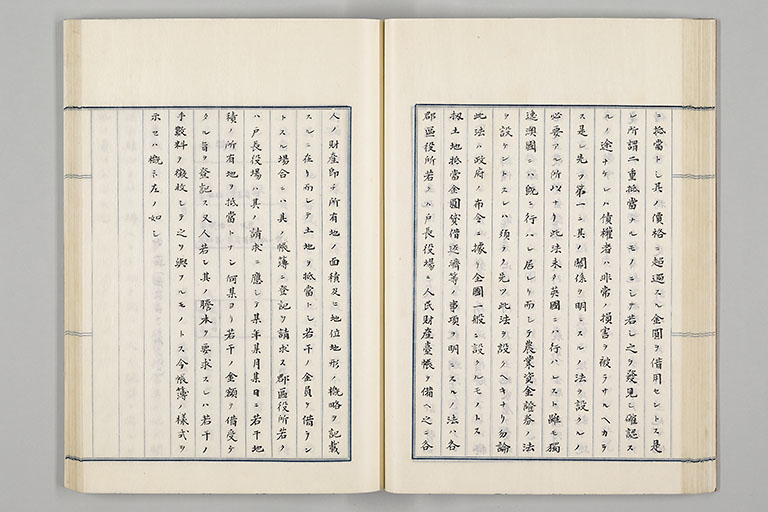 ニ抵當トシ其ノ價格ニ超過スル金圓ヲ借用セントス是
レ所謂二重抵當トルモノニシテ若シ之ヲ發見シ確認ス
ルノ途ナケレハ債權者ハ非常ノ損害ヲ被ラサルヘカラ
ス是レ先ツ第一ニ其ノ關係ヲ明ニスルノ法ヲ設クルノ
必要アル所以ナリ此法未タ英國ニハ行ハレスト雖モ獨
逸澳國ニハ既ニ行ハレ居レリ而シテ農業資金證券ノ法
ヲ設ケントスレハ須ラク先ツ此法ヲ設クヘキナリ勿論
此法ハ政府ノ布令ニ據リ全國一般ニ設クルモノトス
扨土地抵當金圓貸借返濟等ノ事項ヲ明ニスルノ法ハ各
郡區役所若クハ戸長役場ニ人民財產臺帳ヲ備ヘ之ニ各
人ノ財產即チ所有地ノ面積及ヒ地位地形ノ概略ヲ記載
スルニ在リ而シテ土地ヲ抵當トシ若干ノ金員ヲ借ラン
トスル場合ニハ其ノ帳簿ニ登記ヲ請求ス郡區役所若ク
ハ戸長役場ハ其ノ請求ニ應シテ某年某月某日ニ若干地
積ノ所有地ヲ抵當トナシ何某ヨリ若干ノ金額ヲ借受ケ
タル旨ヲ登記ス又人若シ其ノ謄本ヲ要求スレハ若干ノ
手數料ヲ徴收シテ之ヲ與フルモノトス今帳簿ノ樣式ヲ
示セハ概ネ左ノ如シ